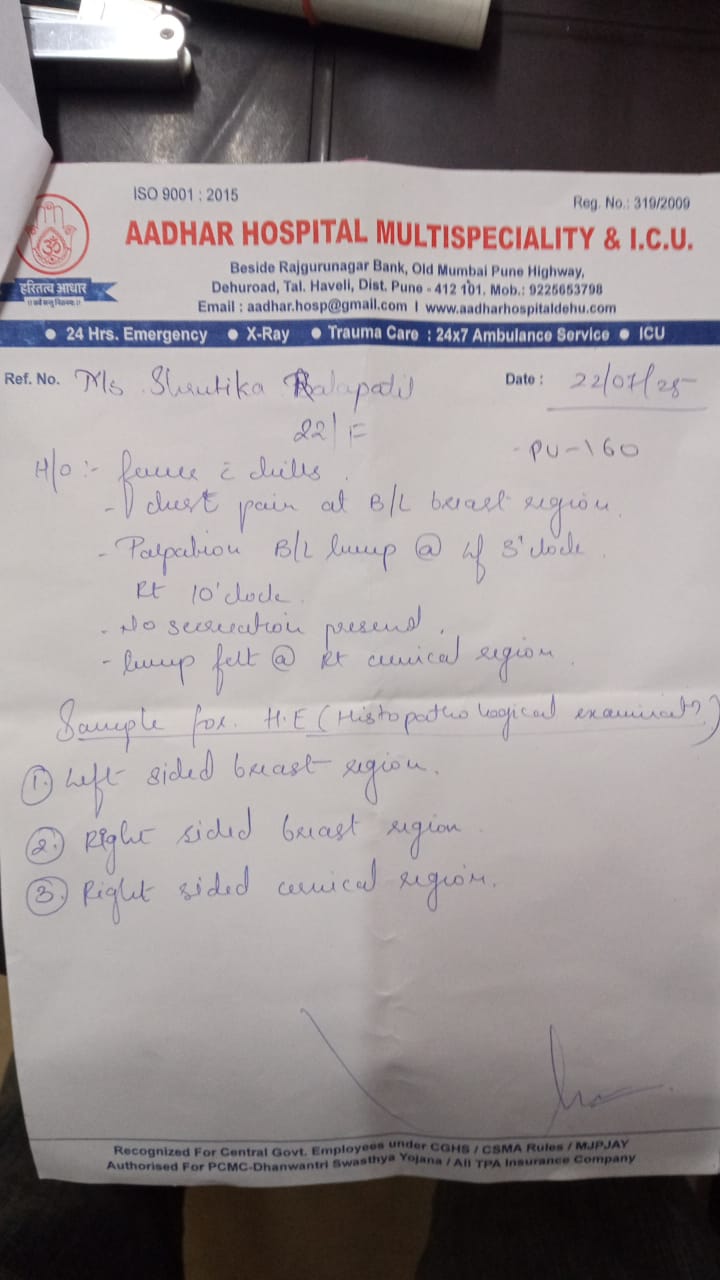 ISO 9001 : 2015
Reg. No.: 319/2009
AADHAR HOSPITAL MULTISPECIALITY & I.C.U.
Beside Rajgurunagar Bank, Old Mumbai Pune Highway,
Dehuroad, Tal. Haveli, Dist. Pune - 412 101. Mob.: 9225653798
Email : aadhar.hosp@gmail.com I www.aadharhospitaldehu.com
हरितत्व आधार
● 24 Hrs. Emergency ● X-Ray ● Trauma Care : 24x7 Ambulance Service ● ICU
Ref. No. Ms. Shrutika
Date : 22/07/25
22/F
- PU-160
H/O :- c chills.
- chest pain at B/L breast region.
- Palpation B/L lump @ Lf 3'clock.
Rt 10'clock.
- No present.
- lump felt @ Rt cervical region.
Sample for. H.E (Histopathological
1. Left sided breast region.
2. Right sided breast region.
3. Right sided cervical region.
Recognized For Central Govt. Employees under CGHS / CSMA Rules / MJPJAY
Authorised For PCMC-Dhanwantri Swasthya Yojana / All TPA Insurance Company